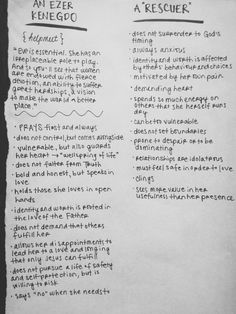 AN EZER
KENEGDO
{helpmeet}
"EVE is essential. She has an
irreplaceable role to play.
And so you'll see that women
are endowed with fierce
devotion, an ability to suffer
great hardships, a vision
to make the world a better
place."
• PRAYS-first and always
• does not control, but comes alongside
• vulnerable, but also guards
her heart → "wellspring of life"
• does not falter from Truth
• bold and honest, but speaks in
love
• holds those she loves in open
hands
• identity and worth is rooted in
the love of the Father
• does not demand that others
fulfill her
• allows her disappointments to
lead her to a love and longing
that only Jesus can fulfill
• does not pursue a life of safety
and self-protection, but is
willing to risk
• says "no" when she needs to
A "RESCUER"
• does not surrender to God's
timing
• always anxious
• identity and worth is affected
by others' behavior and choices
• motivated by her own pain
• demanding heart
• spends so much energy on
others that she herself runs
dry
• cannot be vulnerable
• does not set boundaries
• prone to despair or to be
dominating
• relationships are idolatrous
• must feel safe in order to love
• clings
• sees more value in her
usefulness than her presence